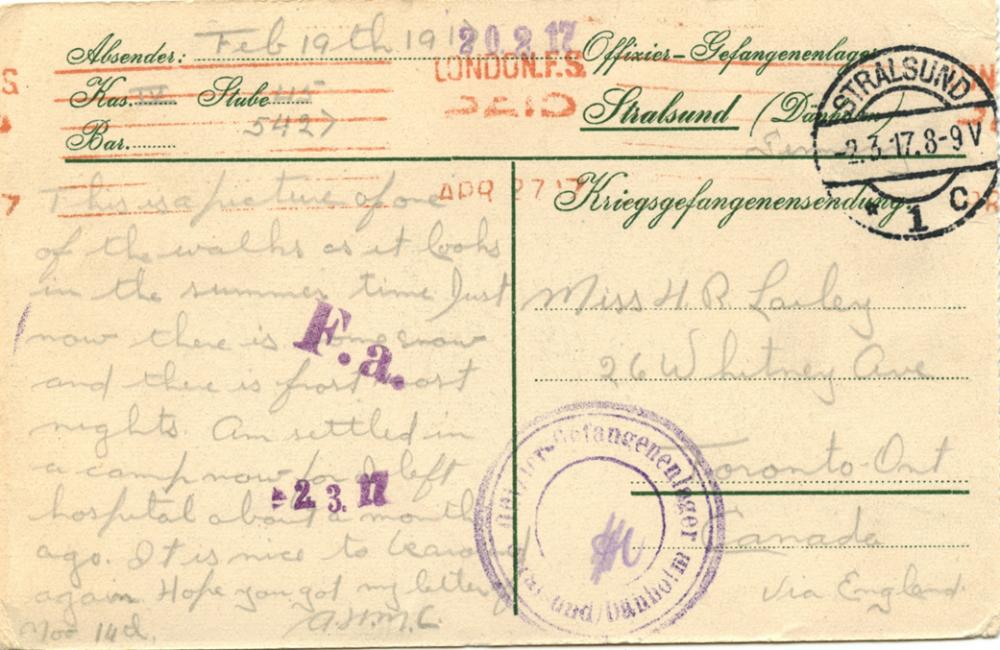 Absender: Feb 19th 191
20.2.17
Offizier-Gefangenenlager
LONDON.F.S.
PAID
Kas. IV Stube 45
Stralsund (Dänholm)
5427
Bar.
STRALSUND
-2.3.17.8-9V
* 1 C
APR 27 17
Kriegsgefangenensendung
This is a picture of one
of the walks as it looks
in the summer time Just
now there is some snow
and there is frost most
nights. Am settled in
a camp now for I left
hospital about a month
ago. It is nice to be around
again. Hope you got my letter of
Nov 14th. A.H.M.C.
F.a.
-2.3.17
Miss H R Lailey
26 Whitney Ave
Toronto Ont
Canada
Via England
Offizier-Gefangenenlager
Stralsund/Dänholm